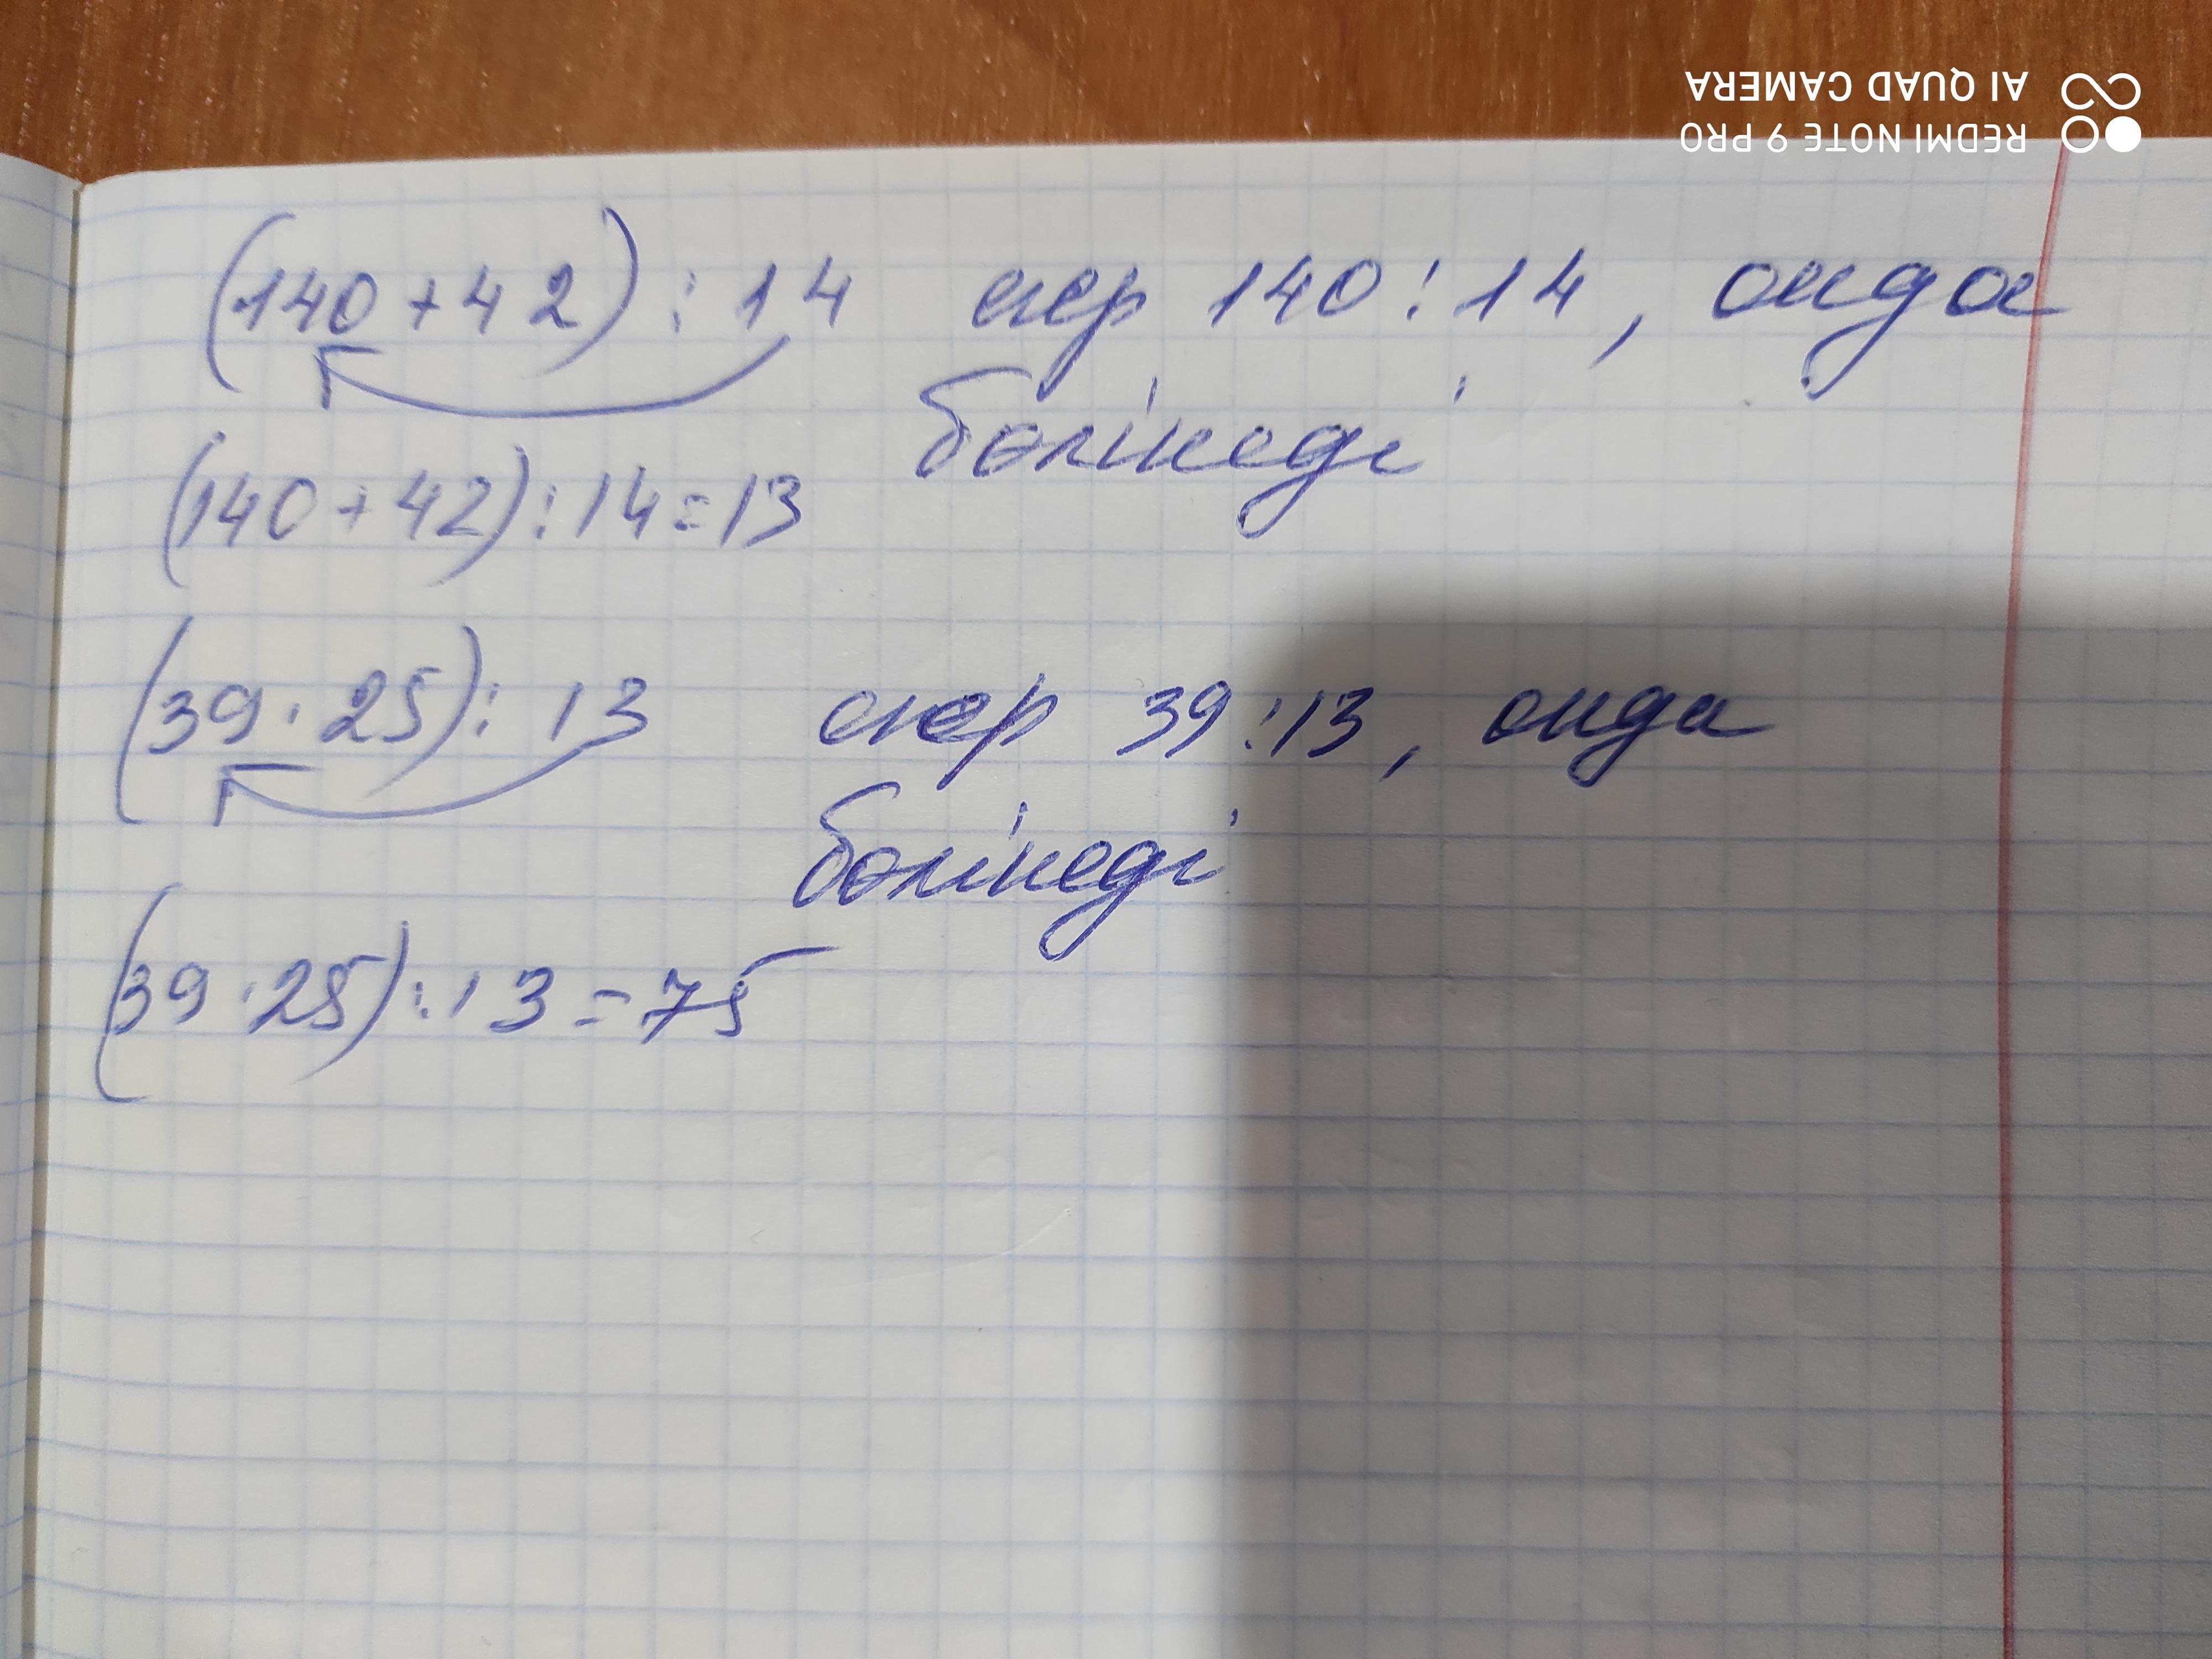 (140+42):14 егер 140:14, онда
бөлінеді
(140+42):14=13
(39·25):13 егер 39:13, онда
бөлінеді
(39·25):13=75
REDMI NOTE 9 PRO
AI QUAD CAMERA